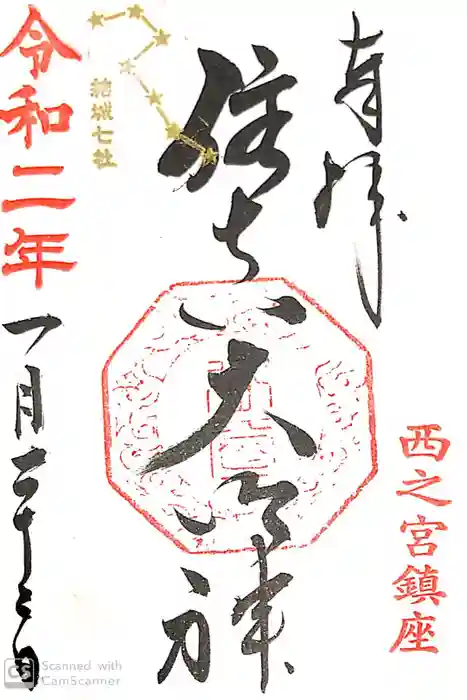 奉拝
西之宮鎮座
住吉大明神
結城七社
令和二年
一月二十七日
CS Scanned with
CamScanner